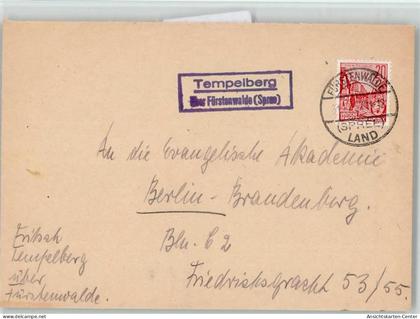 Tempelberg
über Fürstenwalde (Spree)
20
FÜRSTENWALDE
(SPREE)
LAND
An die Evangelische Akademie
Berlin-Brandenburg.
Bln. C2
Friedrichsgracht 53/55.
Fritsch
Tempelberg
über
Fürstenwalde.
www.delcampe.net
Ansichtskarten-Center